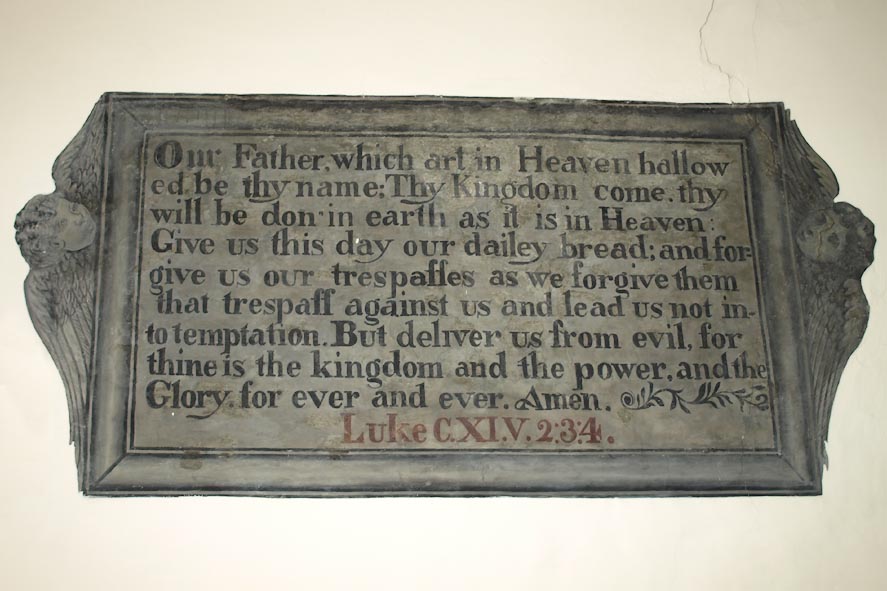 Our Father, which art in Heaven hallow
ed. be thy name; Thy Kingdom come. thy
will be don· in earth as it is in Heaven:
Give us this day our dailey bread; and for-
give us our trespaſſes as we forgive them
that trespaſſ against us and lead us not in-
to temptation. But deliver us from evil, for
thine is the kingdom and the power, and the
Glory. for ever and ever. Amen.
Luke C.XI.V. 2:3:4.